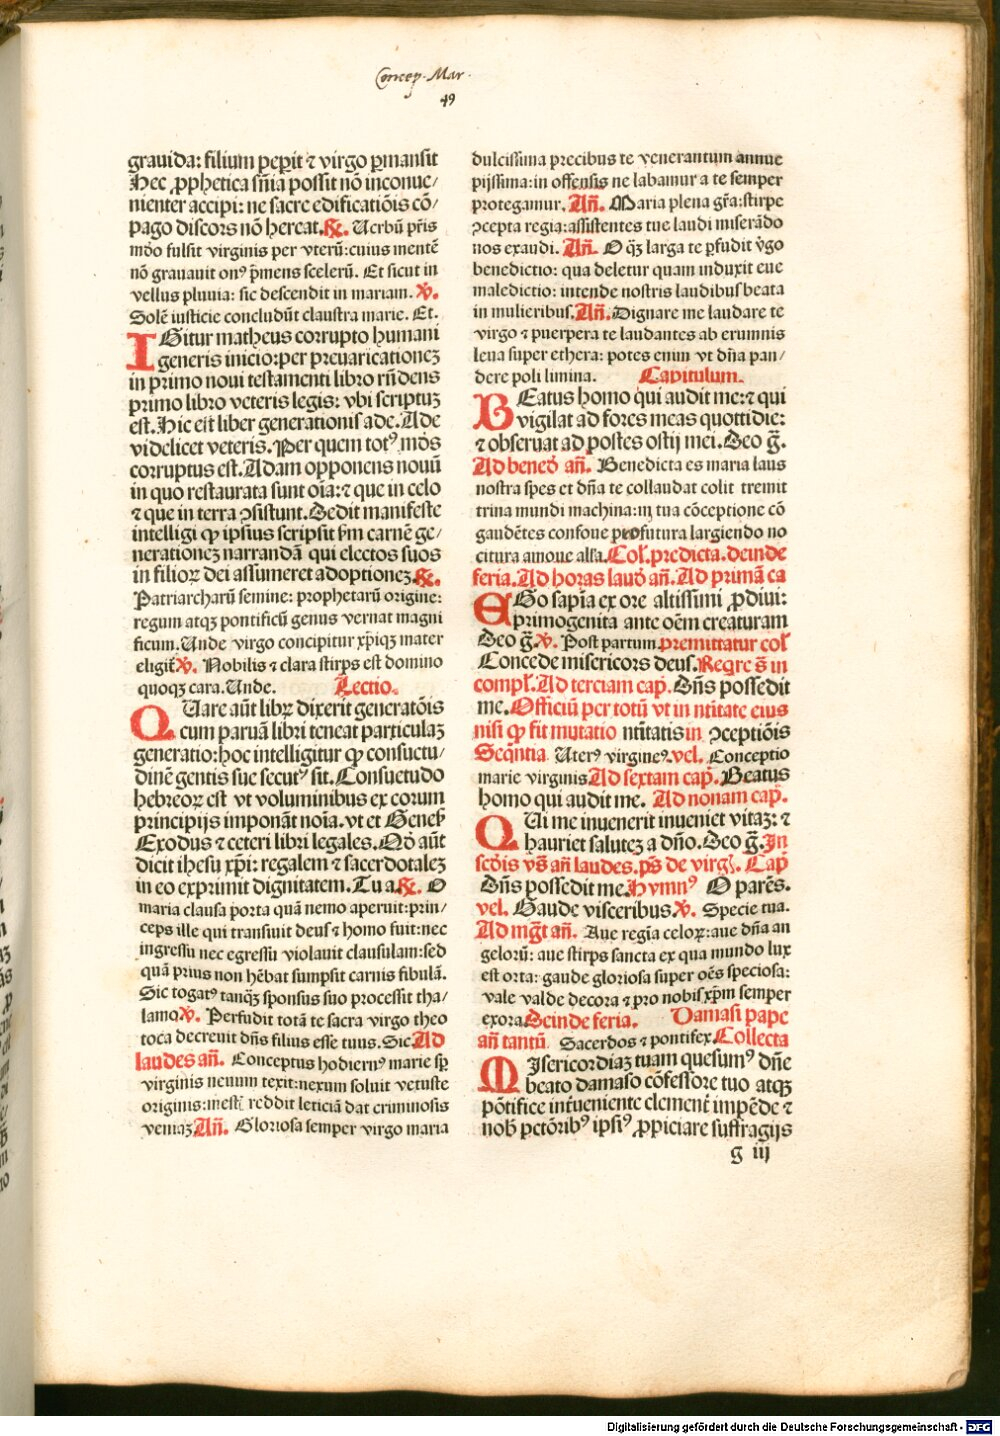 Concep. Mar.
49
grauida: filium peꝑit ⁊ virgo ꝑmansit
Hec ꝓpphetica sñia possit nõ inconue/
nienter accipi: ne sacre edificatiõis cõ/
pago discors nõ hereat. R̃. Uerbũ p̃ris
mõo fulsit virginis per vterũ: cuius mentẽ
nõ grauauit onꝰ p̃mens scelerũ. Et sicut in
vellus pluuia: sic descendit in mariam. V̇.
Solẽ iusticie concludũt claustra marie. Et.
IGitur matheus corrupto humani
generis inicio: per preuaricationeꝫ
in primo noui testamenti libro rñdens
primo libro veteris legis: vbi scriptuꝫ
est. Hic est liber generationis ade. Ade
videlicet veteris. Per quem totꝰ mõs
corruptus est. Adam opponens nouũ
in quo restaurata sunt oĩa: ⁊ que in celo
⁊ que in terra ꝯsistunt. Dedit manifeste
intelligi ꝙ ipsius scripsit ẜm carnẽ ge/
nerationeꝫ narrandã qui electos suos
in filioꝝ dei assumeret adoptioneꝫ. R̃.
Patriarcharũ semine: prophetarũ origine:
regum atqꝫ pontificũ genus vernat magni
ficum. Unde virgo concipitur xp̃iqꝫ mater
eligit̃ V̇. Nobilis ⁊ clara stirps est domino
quoqꝫ cara. Unde. Lectio.
QUare aũt libꝝ dixerit generatõis
cum paruã libri teneat particulaꝫ
generatio: hoc intelligitur ꝙ consuetu/
dinẽ gentis sue secutꝰ sit. Consuetudo
hebreoꝝ est vt voluminibus ex eorum
principijs imponãt noĩa. vt et Geneẜ
Exodus ⁊ ceteri libri legales. Qð aũt
dicit ihesu xp̃i: regalem ⁊ sacerdotaleꝫ
in eo exprimit dignitatem. Tu a. R̃. O
maria clausa porta quã nemo aperuit: prin/
ceps ille qui transiuit deus ⁊ homo fuit: nec
ingressu nec egressu violauit clausulam: sed
quã prius non hẽbat sumpsit carnis fibulã.
Sic togatꝰ tanqꝫ̃ sponsus suo processit tha/
lamo V̇. Perfudit totã te sacra virgo theo
toca decreuit dñs filius esse tuus. Sic Ad
laudes añ. Conceptus hodiernꝰ marie sꝑ
virginis neuum texit: nexum soluit vetuste
originis: mest̃ reddit leticiã dat criminosis
veniaꝫ Añ. Gloriosa semper virgo maria
dulcissima precibus te venerantum annue
pijssima: in offensis ne labamur a te semper
protegamur. Añ. Maria plena gr̃a: stirpe
ꝯcepta regia: assistentes tue laudi miserãdo
nos exaudi. Añ. O qꝫ̃ larga te ꝑfudit v̇go
benedictio: qua deletur quam induxit eue
maledictio: intende nostris laudibus beata
in mulieribus. Añ. Dignare me laudare te
virgo ⁊ puerpera te laudantes ab erumnis
leua super ethera: potes enim vt dña pan/
dere poli limina. Capitulum.
BEatus homo qui audit me: ⁊ qui
vigilat ad fores meas quottidie:
⁊ obseruat ad postes ostij mei. Deo g̃.
Ad beneð añ. Benedicta es maria laus
nostra spes et dña te collaudat colit tremit
trina mundi machina: in tua cõceptione cõ
gaudẽtes confoue profutura largiendo no
citura amoue alla. Col̃. predicta. deinde
feria. Ad horas lauð añ. Ad primã ca
EGo sapĩa ex ore altissimi ꝓdiui:
primogenita ante oẽm creaturam
Deo g̃. V̇. Post partum premittatur col̃
Concede misericors deus. Reqre s̃ in
compl̃. Ad terciam cap̃. Dñs possedit
me. Officiũ per totũ vt in ntĩtate eius
nisi ꝙ fit mutatio ntĩtatis in ꝯceptiõis
Seqñtia Uterꝰ virgineꝰ. vel. Conceptio
marie virginis Ad sextam cap̃. Beatus
homo qui audit me. Ad nonam cap̃.
QUi me inuenerit inueniet vitaꝫ: ⁊
hauriet saluteꝫ a dño. Deo g̃. In
scðis vs̃ añ laudes. ps̃ de virgĩ. Cap̃
Dñs possedit me. Hymnꝰ O parẽs.
vel. Gaude visceribus V̇. Specie tua.
Ad mg̃t añ. Aue regĩa celoꝝ: aue dña an
gelorũ: aue stirps sancta ex qua mundo lux
est orta: gaude gloriosa super oẽs speciosa:
vale valde decora ⁊ pro nobis xp̃m semper
exora Deinde feria. Damasi pape
añ tantũ. Sacerdos ⁊ pontifex Collecta
MIsericordiaꝫ tuam quesumꝰ dñe
beato damaso cõfessore tuo atqꝫ
põtifice inťueniente clement̃ impẽde ⁊
nob̃ pctõribꝰ ipsiꝰ ꝓpiciare suffragijs
g iij
Digitalisierung gefördert durch die Deutsche Forschungsgemeinschaft - DFG